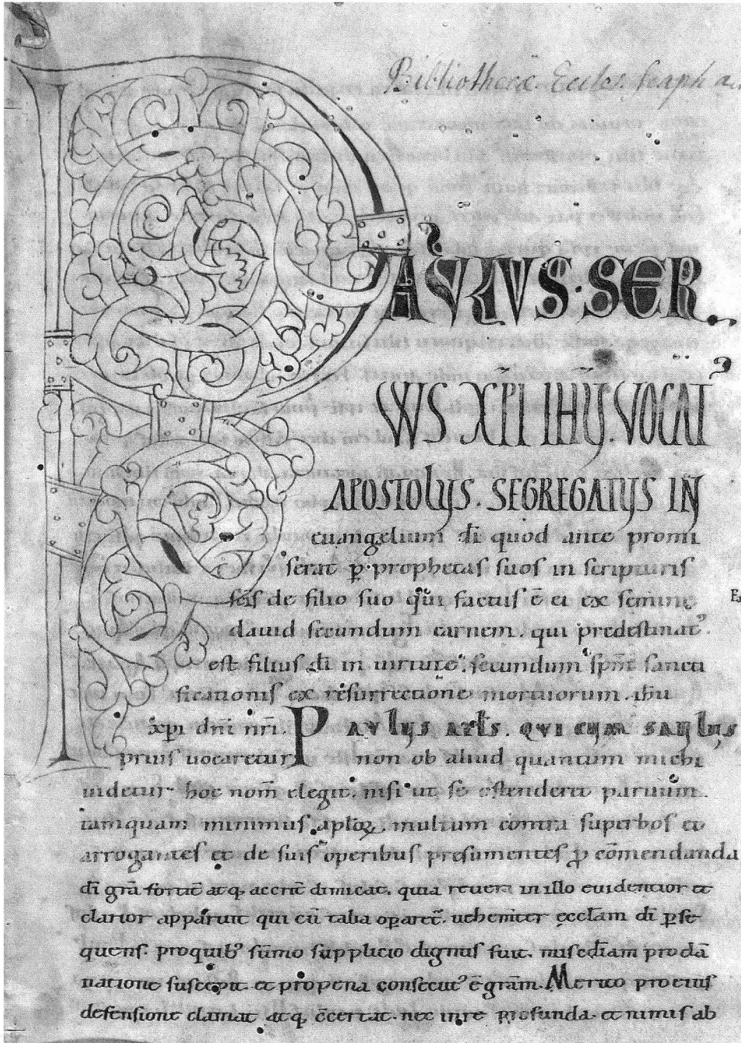 Bibliothecæ Eccles.
PAULUS·SER
VUS XP̄I IHŪ. VOCAT᾿
APOSTOLUS. SEGREGATUS IN
euangelium dī quod ante promi
serat p̄ prophetas suos in scripturis
sc̄is de filio suo qui factus ē ei ex semine
dauid secundum carnem. qui predestinat᾿
est filius dī in uirtute. secundum sp̄m sancti
ficationis ex resurrectione mortuorum. ihū
xp̄i dn̄i nr̄i. PAULUS apl̄s. qui cum saulus
prius uocaretur non ob aliud quantum michi
uidetur hoc nom̄ elegit. nisi ut se ostenderet paruum.
tamquam minimus aploꝝ. multum contra superbos et
arrogantes et de suis operibus presumentes ꝓ cōmendanda
dī grā fortit̄ atq; acrit̄ dimicat. quia reuera in illo euidentior et
clarior apparuit qui cū talia oꝑaret᾿. uehemt̄er eccl̄am dī ꝑse
quens. proquib; sūmo supplicio dignus fuit. misc̄diam pro dā
natione suscepit. et pro pena consecut᾿ ē grām. Merito pro eius
defensione clamat atq; c̄certat. nec in re profunda. et nimis ab